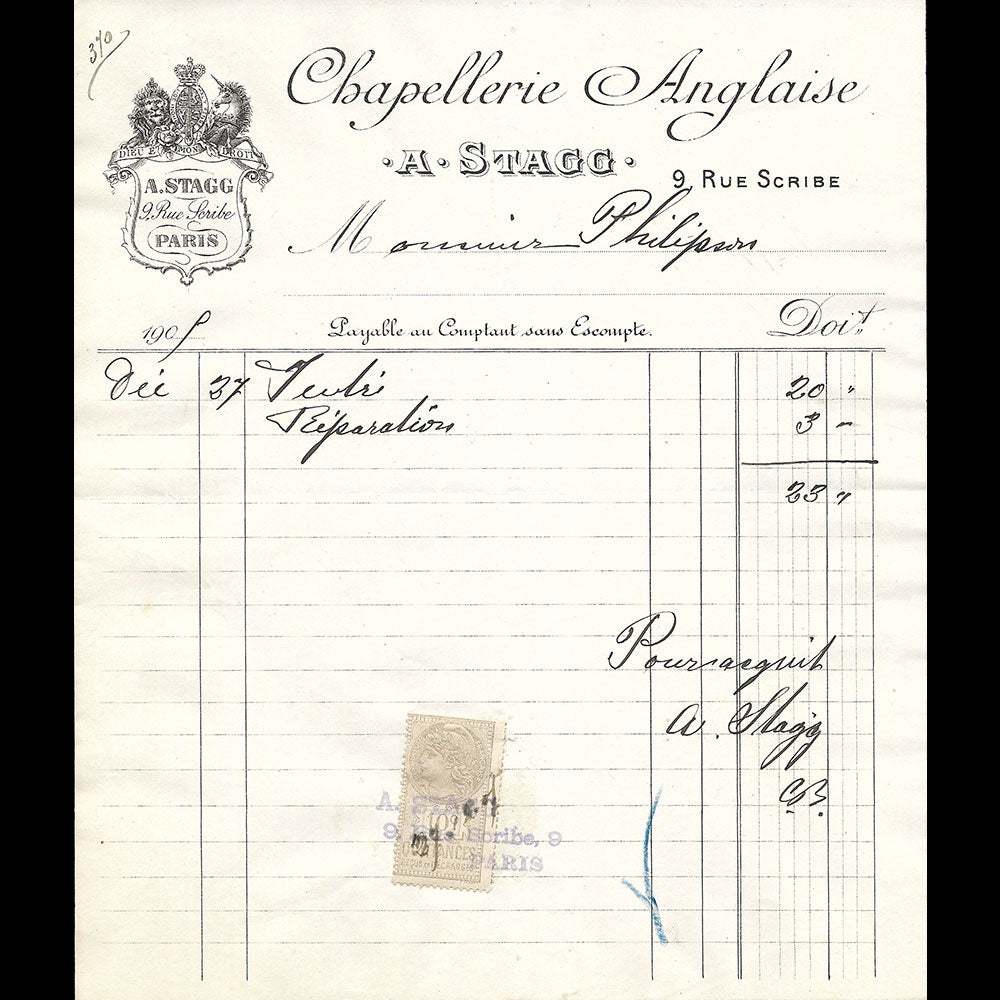 370
Chapellerie Anglaise
DIEU ET MON DROIT
A. STAGG
9, Rue Scribe
PARIS
· A · STAGG ·
9, RUE SCRIBE
Monsieur Philipson
1905
Payable au Comptant sans Escompte.
Doit
Déc 27 20 "
Réparation 3 "
23 "
Pour acquit
A. Stagg
CB.
A. STAGG
10c
QUITTANCES
9, Rue Scribe, 9
PARIS